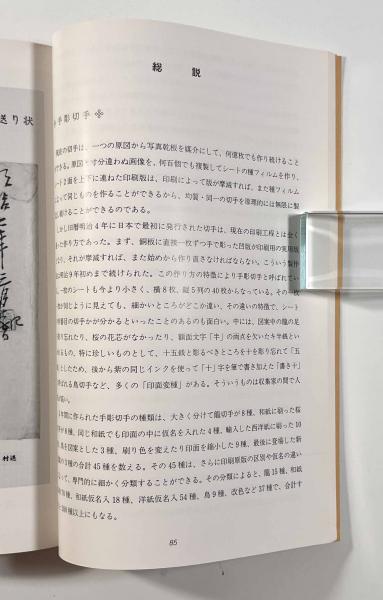 送り状
村送
総説
手彫切手
現在の切手は、一つの原図から写真乾板を媒介にして、何億枚でも作り続けること
できる。原図と寸分違わぬ画像を、何百個でも複製してシートの種フィルムを作り、
シート2面を上下に連ねた印刷版は、印刷によって版が摩滅すれば、また種フィルム
よって同じものを作ることができるから、均質・同一の切手を原理的には無限に製
し続けることができるのである。
しかし旧暦明治4年に日本で最初に発行された切手は、現在の印刷工程とは全く
った作り方であった。まず、銅板に直接一枚ずつ手で彫った凹版が印刷用の実用版
なり、それが摩滅すれば、また始めから作り直さなければならない。こういう製作
は明治9年初めまで続けられた。この作り方の特徴により手彫切手と呼ばれてい
。一枚のシートも今より小さく、横8枚、縦5列の40枚からなっている。その一枚
枚が同じように見えても、細かいところがどこか違い、その違いの特徴で、シート
何番目の切手かが分かるといったことのあるのも面白い。中には、図案中の龍の足
彫り忘れたり、桜の花芯がなかったり、額面文字「半」の両点を欠いた半銭とい
あるもの、特に珍しいものとして、十五銭と彫るべきところを十を彫り忘れて「五
」としたため、後から紫の同じインクを使って「十」字を筆で書き加えた「書き十」
呼ばれる鳥切手など、多くの「印面変種」がある。そういうものは収集家の間で人
が高い。
年間に作られた手彫切手の種類は、大きく分けて龍切手が8種、和紙に刷った桜
種、同じ和紙でも印面の中に仮名を入れた4種、輸入した西洋紙に刷った10
、鳥を図案とした3種、刷り色を変えたり印面を縮小した9種、最後に登場した新
の3種の合計45種を数える。その45種は、さらに印刷原版の区別や仮名の違い
って、専門的に細かく分類することができる。その分類によると、龍15種、和紙
種、和紙仮名入18種、洋紙仮名入54種、鳥9種、改色など37種で、合計す
種以上にもなる。
85